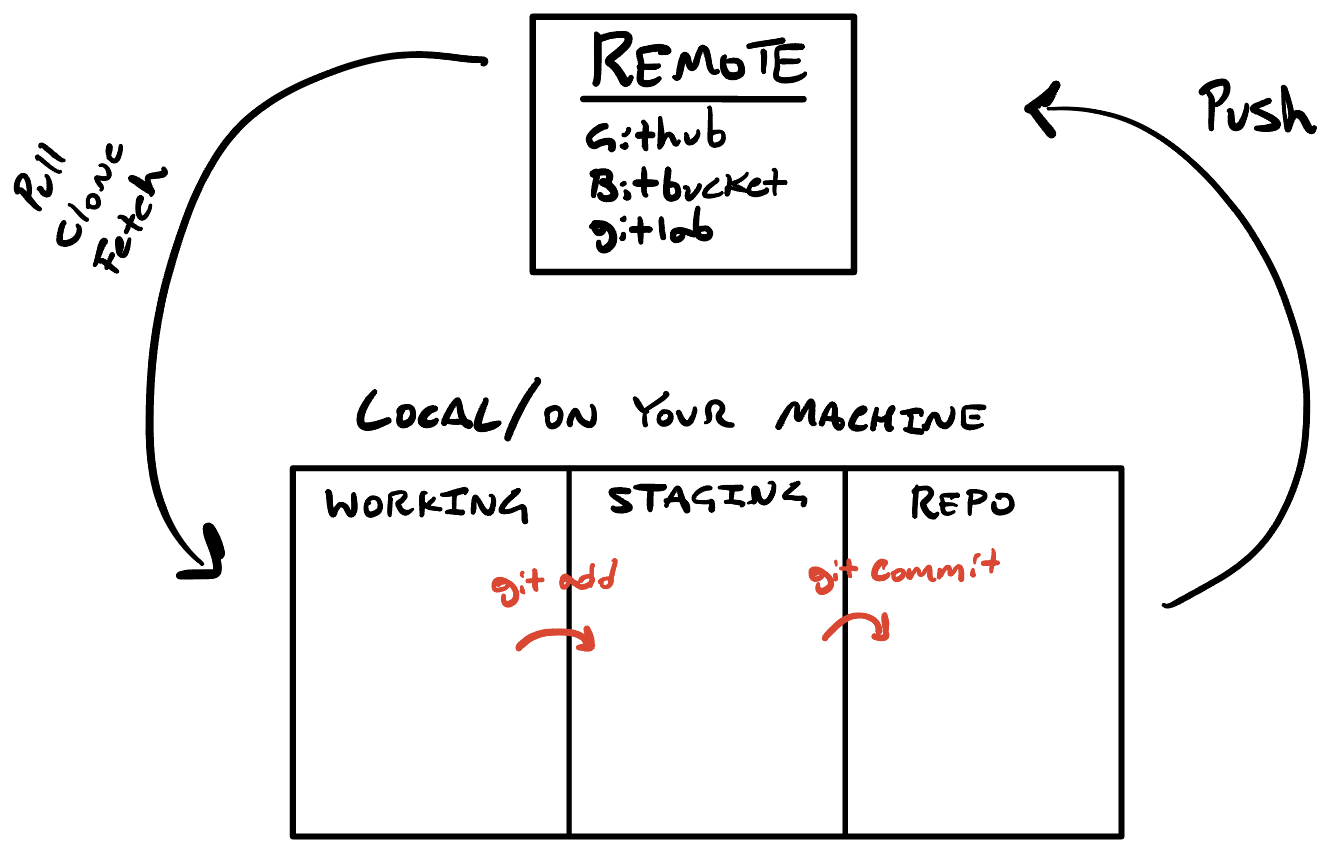 REMOTE
Github
Bitbucket
gitlab
Pull
Clone
Fetch
Push
LOCAL/ON YOUR MACHINE
WORKING
STAGING
REPO
git add
git commit